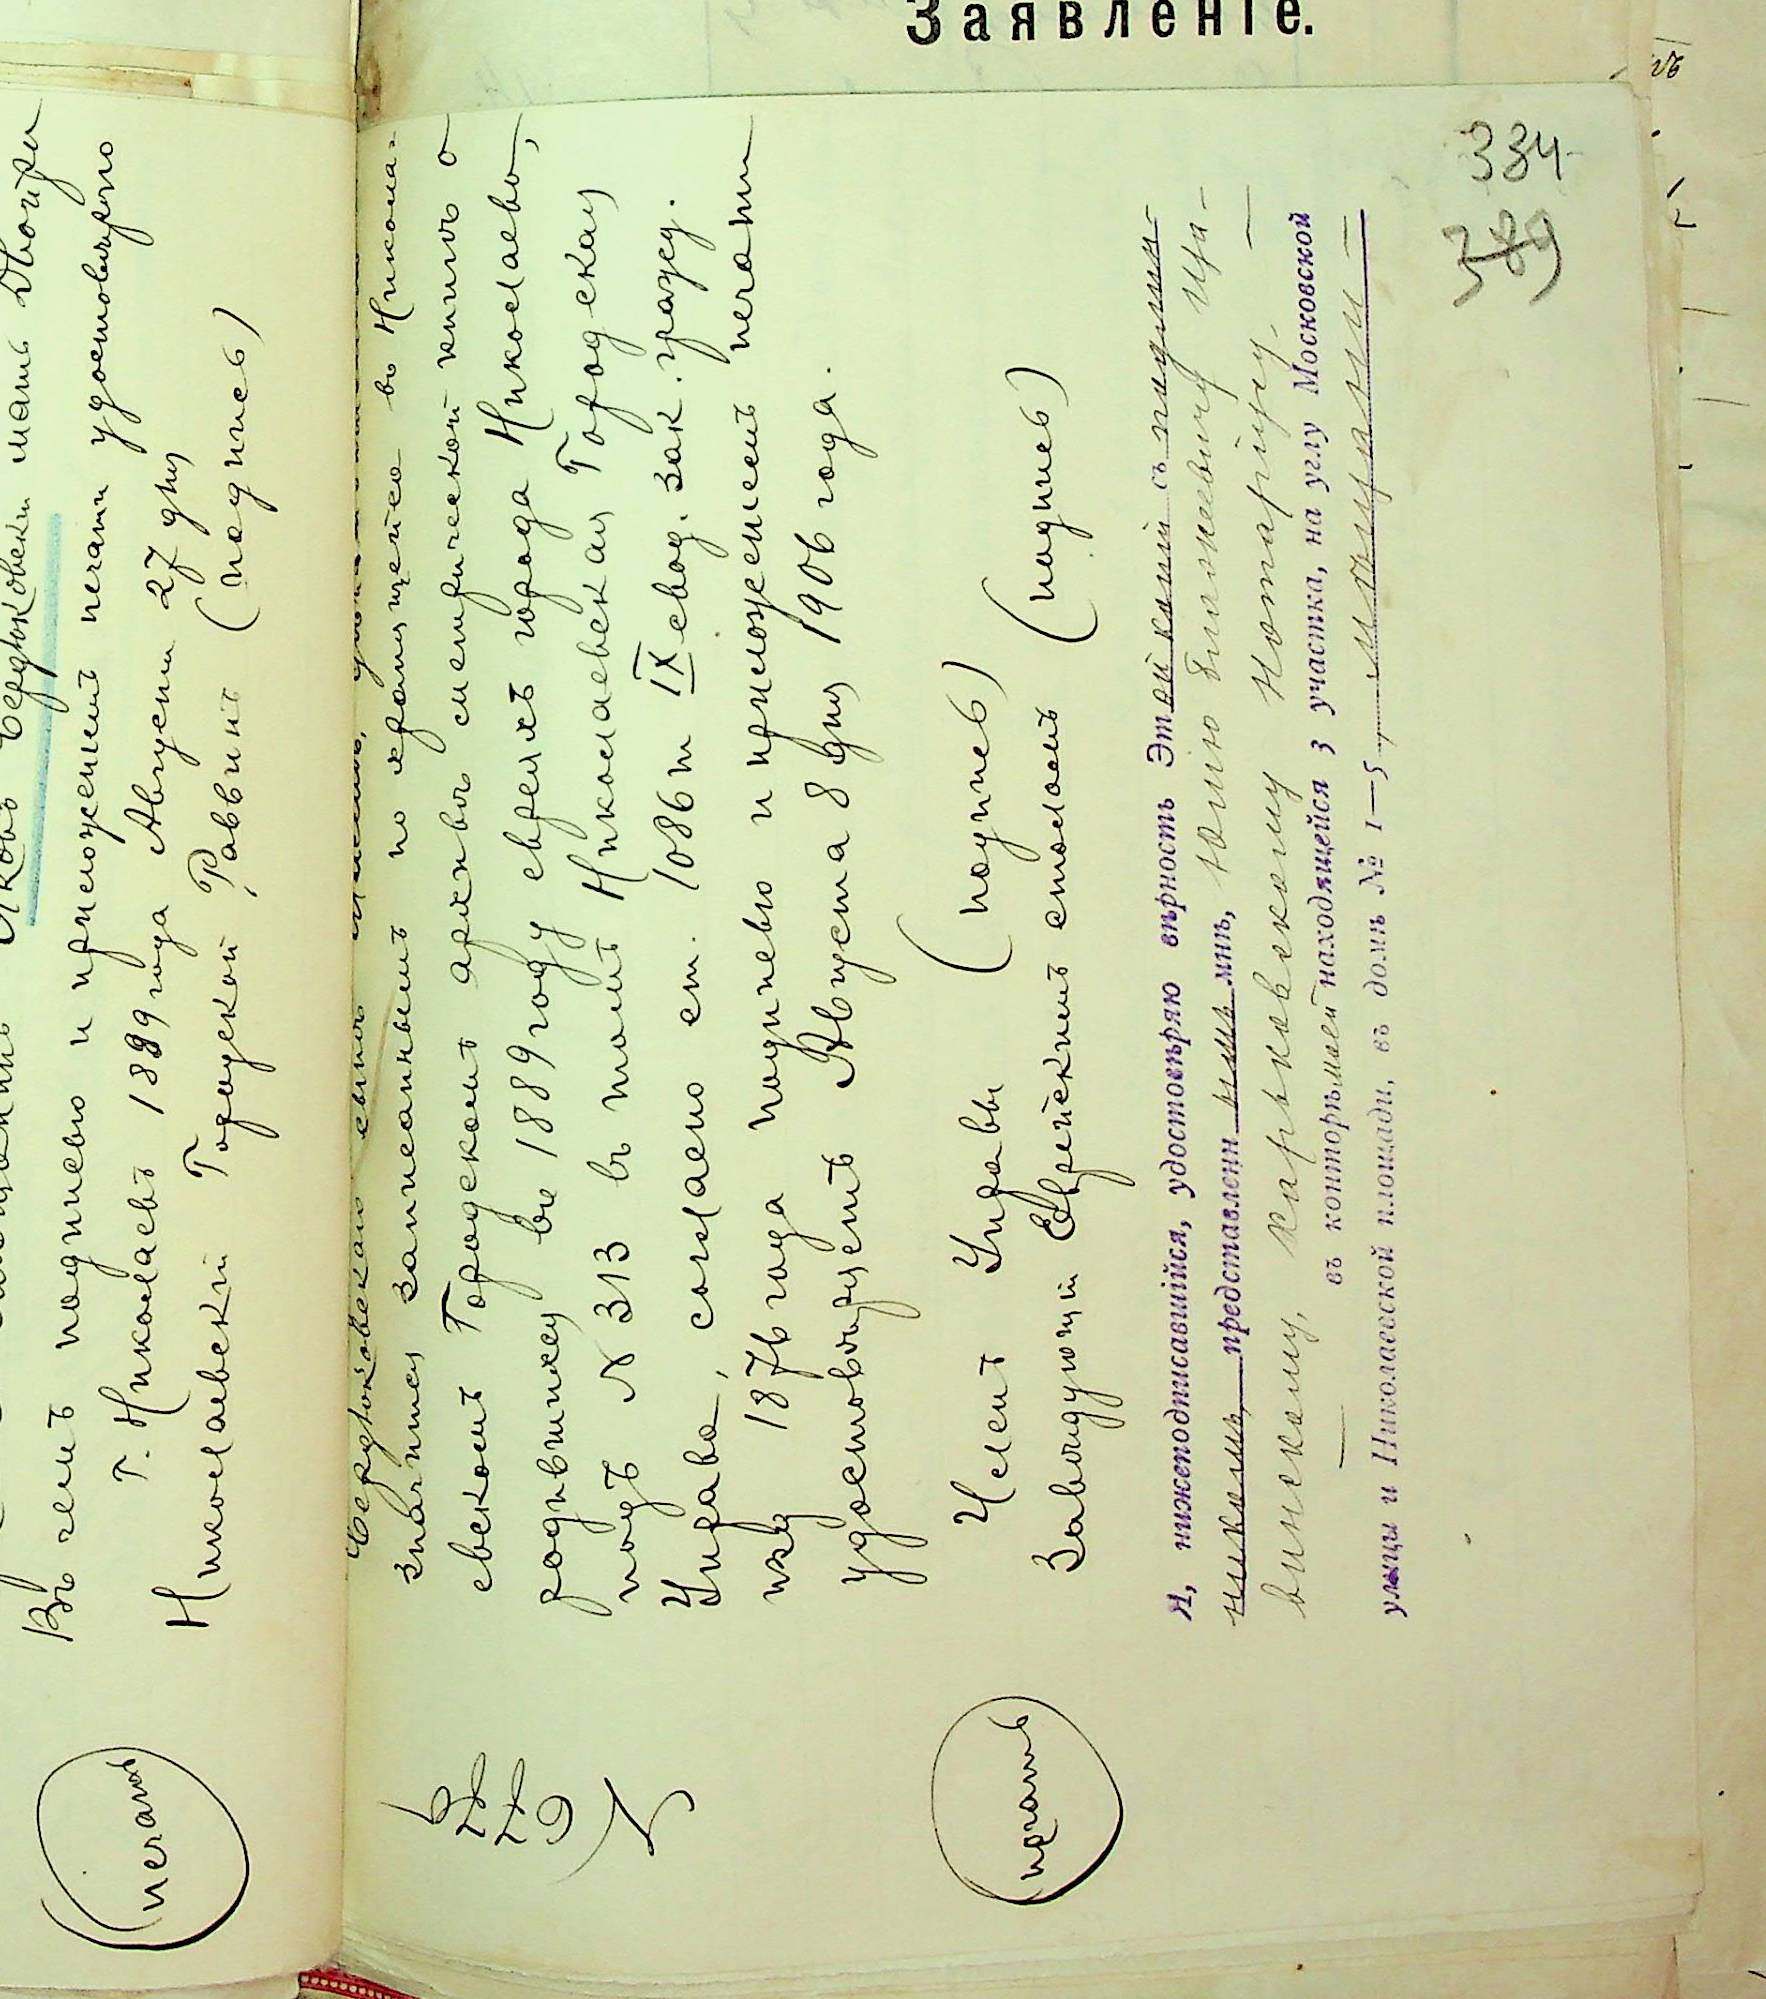 Заявленіе.
334
389
Яковъ Бердюковски мать Двойри
Въ чемъ подписью и приложеніемъ печати удостовѣрено
г. Николаевъ 1889 года Августа 27 дня
Николаевскій Городской Раввинъ (подпись)
печать
значится записаннымъ по хранящейся въ Никола-
евскомъ Городскомъ архивѣ метрической книгѣ о
родившихся въ 1889 году евреяхъ города Николаева,
подъ № 313 въ томъ Николаевская Городская
Управа, согласно ст. 1086 т IX свод. зак. гражд.
изд 1876 года подписью и приложеніемъ печати
удостовѣряетъ Августа 8 дня 1906 года.
№ 6779
Членъ Управы (подпись)
Завѣдующій Еврейскимъ столомъ (подпись)
печать
Я, нижеподписавшійся, удостовѣряю вѣрность этой копіи съ подлин-
никомъ, представленнымъ мнѣ, Юлію Кгаэтоновичу Ци-
винскому, Харьковскому Нотаріусу,
въ конторѣ моей находящейся 3 участка, на углу Московской
улицы и Николаевской площади, въ домѣ № 1—5, мѣщани